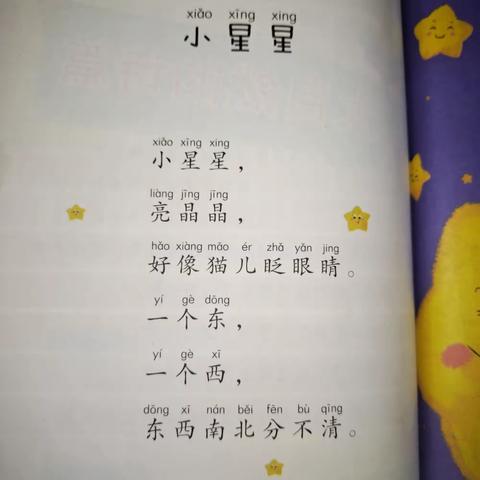 xiǎo xīng xing
小星星
xiǎo xīng xing
小星星，
liàng jīng jīng
亮晶晶，
hǎo xiàng māo ér zhǎ yǎn jing
好像猫儿眨眼睛。
yí gè dōng
一个东，
yí gè xī
一个西，
dōng xī nán běi fēn bù qīng
东西南北分不清。